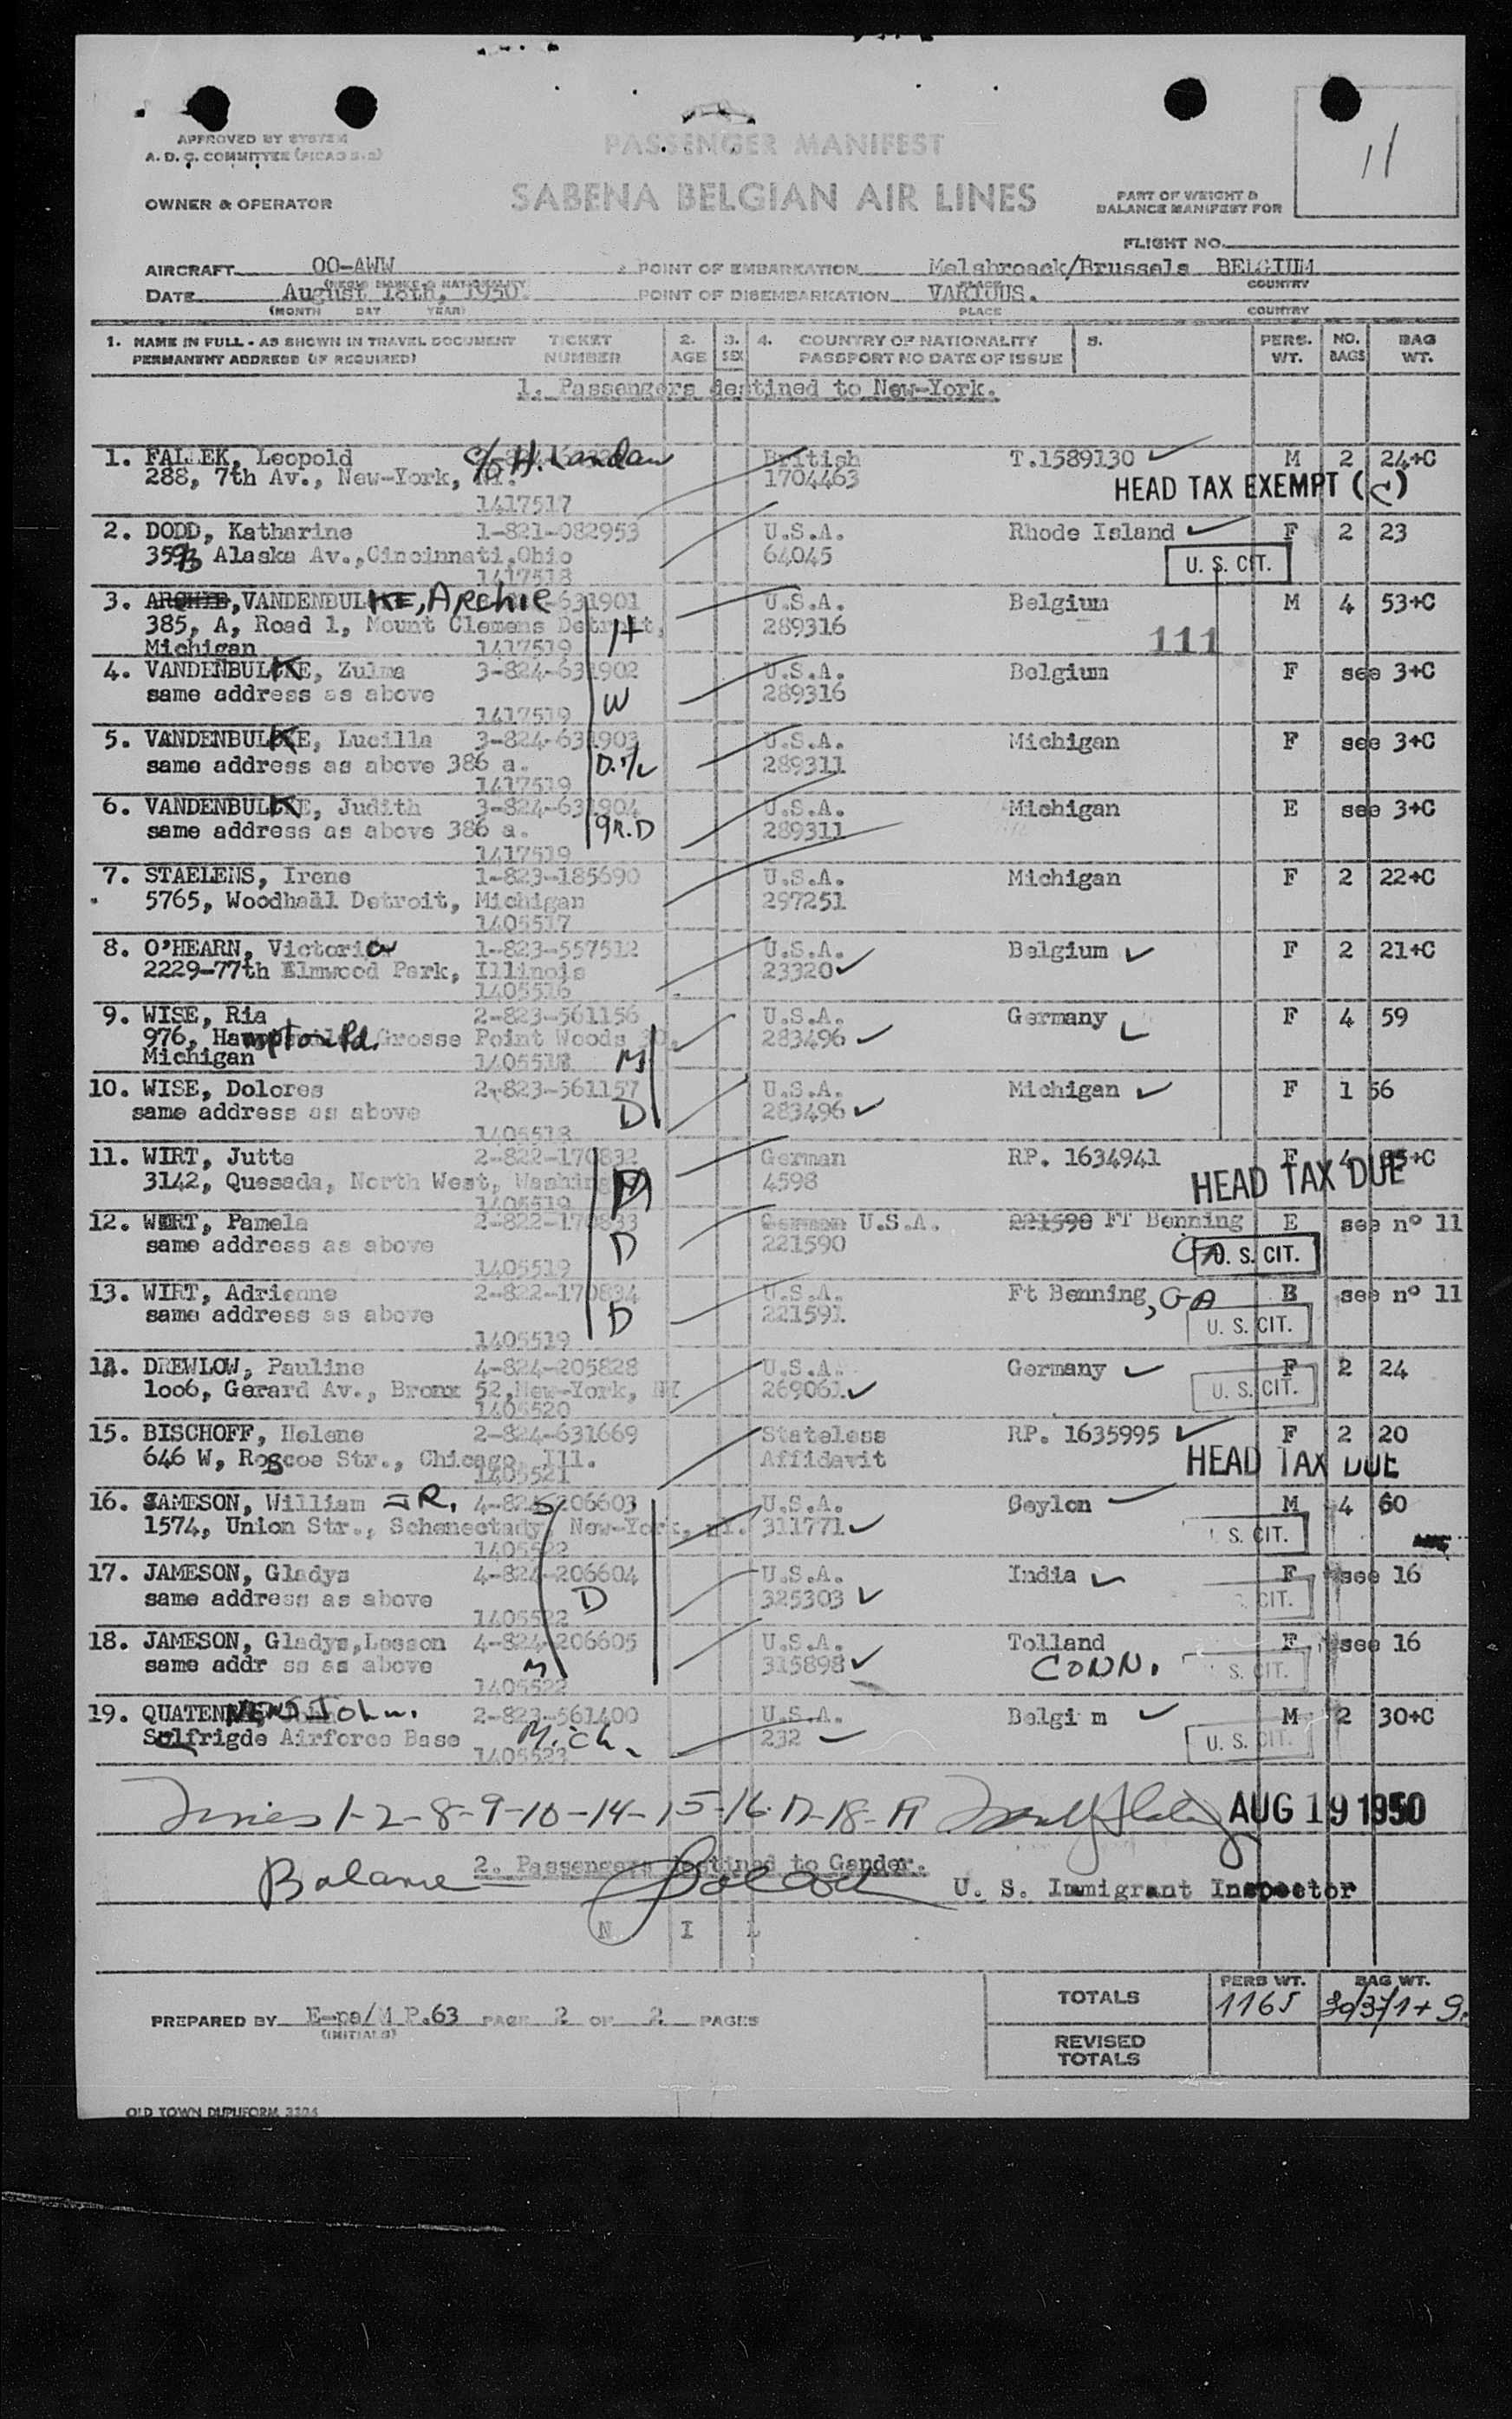 11
APPROVED BY SYSTEM
A. D. C. COMMITTEE (FICAO S-2)
PASSENGER MANIFEST
SABENA BELGIAN AIR LINES
OWNER & OPERATOR
PART OF WEIGHT &
BALANCE MANIFEST FOR
FLIGHT NO.
AIRCRAFT OO-AWW POINT OF EMBARKATION Melsbroeck/Brussels BELGIUM
PLACE COUNTRY
DATE August 18th, 1950. POINT OF DISEMBARKATION VARIOUS.
(MONTH DAY YEAR) PLACE COUNTRY
1. NAME IN FULL - AS SHOWN IN TRAVEL DOCUMENT TICKET 2. 3. 4. COUNTRY OF NATIONALITY 5. PERS. NO. BAG
PERMANENT ADDRESS (IF REQUIRED) NUMBER AGE SEX PASSPORT NO DATE OF ISSUE WT. BAGS WT.
1. Passengers destined to New-York.
1. FALLEK, Leopold c/o H. Landau British T.1589130 M 2 24+C
288, 7th Av., New-York, NY. 1704463 HEAD TAX EXEMPT (C)
1417517
2. DODD, Katharine 1-821-082953 U.S.A. Rhode Island F 2 23
3593 Alaska Av.,Cincinnati,Ohio 64045 U. S. CIT.
1417518
3. ARCHIE, VANDENBULKE, Archie 631901 U.S.A. Belgium M 4 53+C
385, A, Road 1, Mount Clemens Detroit, H 289316 111
Michigan 1417519
4. VANDENBULKE, Zulma 3-824-631902 U.S.A. Belgium F see 3+C
same address as above W 289316
1417519
5. VANDENBULKE, Lucilla 3-824-631903 U.S.A. Michigan F see 3+C
same address as above 386 a. 289311
1417519
6. VANDENBULKE, Judith 3-824-631904 U.S.A. Michigan E see 3+C
same address as above 386 a. GR.D 289311
1417519
7. STAELENS, Irene 1-823-185690 U.S.A. Michigan F 2 22+C
5765, Woodhaäl Detroit, Michigan 297251
1405517
8. O'HEARN, Victoria 1-823-557512 U.S.A. Belgium F 2 21+C
2229-77th Elmwood Park, Illinois 23320
1405516
9. WISE, Ria 2-823-561156 U.S.A. Germany F 4 59
976, Hampton Rd. Grosse Point Woods 30, 283496
Michigan 1405518 M
10. WISE, Dolores 2-823-561157 U.S.A. Michigan F 1 56
same address as above D 283496
1405518
11. WIRT, Jutta 2-822-170832 German RP. 1634941 F 4 +C
3142, Quesada, North West, Washing M 4598 HEAD TAX DUE
1405519
12. WIRT, Pamela 2-822-170833 German U.S.A. 221590 FT Benning E see n° 11
same address as above D 221590 GA U. S. CIT.
1405519
13. WIRT, Adrienne 2-822-170834 U.S.A. Ft Benning, GA B see n° 11
same address as above D 221591 U. S. CIT.
1405519
14. DREWLOW, Pauline 4-824-205828 U.S.A. Germany F 2 24
1006, Gerard Av., Bronx 52,New-York, NY 269061 U. S. CIT.
1405520
15. BISCHOFF, Helene 2-824-631669 Stateless RP. 1635995 F 2 20
646 W, Roscoe Str., Chicago, Ill. Affidavit HEAD TAX DUE
1405521
16. JAMESON, William JR. 4-824-206603 S U.S.A. Ceylon M 4 60
1574, Union Str., Schenectady, New-York, NY. 311771 U. S. CIT.
1405522
17. JAMESON, Gladys 4-824-206604 U.S.A. India F see 16
same address as above D 325303 S. CIT.
1405522
18. JAMESON, Gladys,Lesson 4-824-206605 U.S.A. Tolland F see 16
same addr ss as above M 315898 CONN. U. S. CIT.
1405522
19. QUATENNENS John. 2-823-561400 U.S.A. Belgi m M 2 30+C
Selfrigde Airforce Base Mich. 232 U. S. CIT.
1405523
1-2-8-9-10-14-15-16-17-18-19 AUG 19 1950
2. Passengers destined to Gander.
Balance U. S. Immigrant Inspector
N I L
TOTALS PERS WT. 1165 BAG WT.
PREPARED BY E-pa/M P.63 PAGE 2 OF 2 PAGES
(INITIALS)
REVISED
TOTALS
OLD TOWN DUPLIFORM